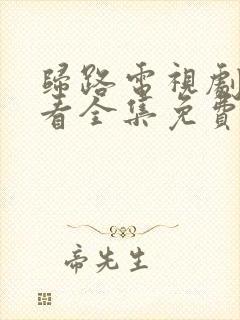 歸路電視劇
看全集免費
帝先生